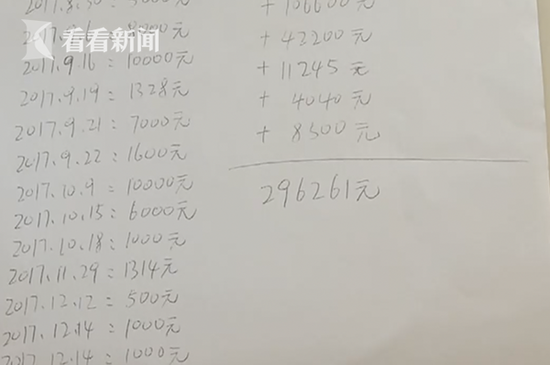 2017.8.30：5000元
看看新闻
2017.9.16：10000元
2017.9.19：1328元
2017.9.21：7000元
2017.9.22：1600元
2017.10.9：10000元
2017.10.15：6000元
2017.10.18：1000元
2017.11.29：1314元
2017.12.12：500元
2017.12.14：1000元
2017.12.14：1000元
+106600元
+43200元
+11245元
+4040元
+8300元
296261元